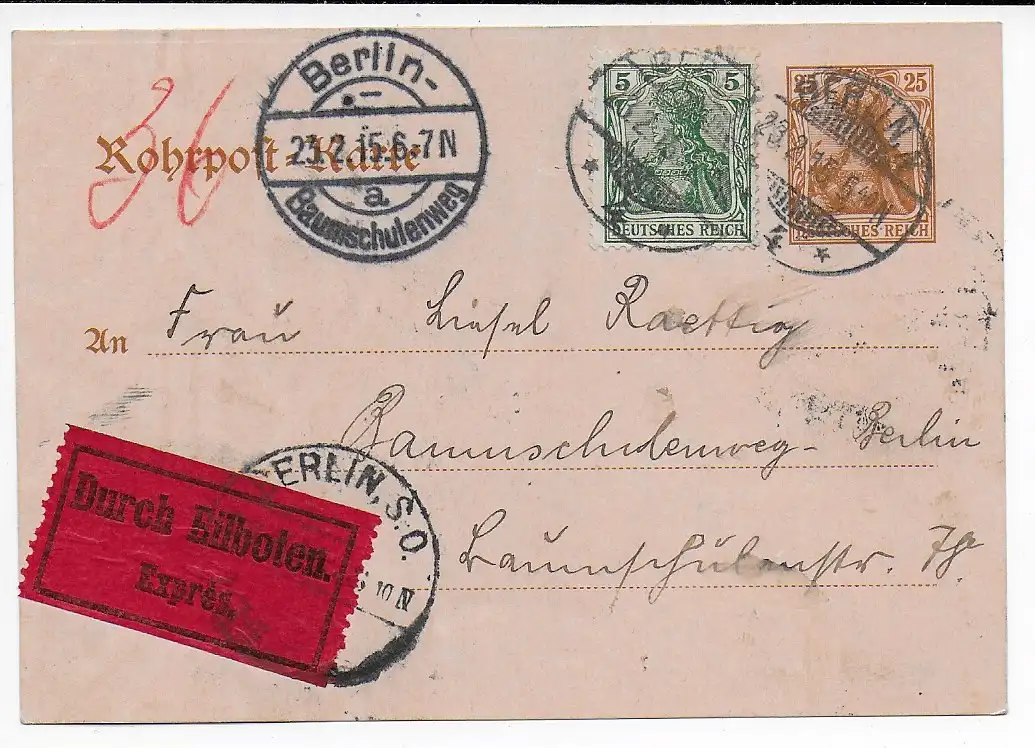 36
Berlin-
23.2.15.6-7N
a
Baumschulenweg
Rohrpost-Karte
5 5
DEUTSCHES REICH
25 25
DEUTSCHES REICH
BERLIN,
23.2.15
An Frau Liesel Raettig
Baumschulenweg-Berlin
Baumschulenstr.
Durch Eilboten.
Exprès.
BERLIN, S.O.
10 N